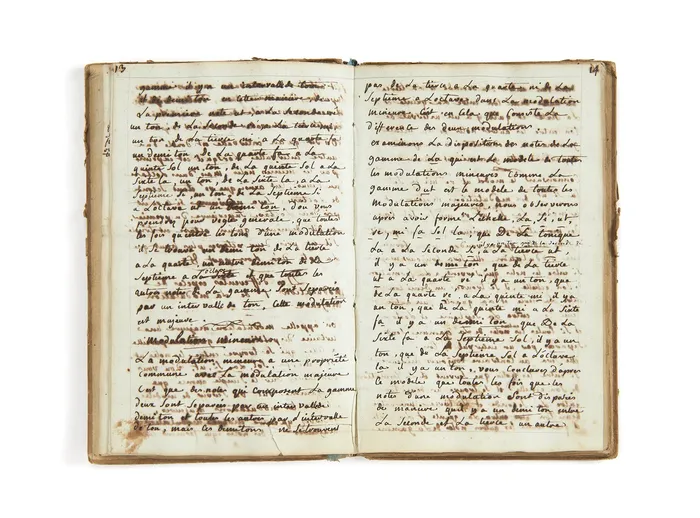 13
gamme il y a un intervalle de ton
et de demi ton en cette maniere, de
La premiere note ut à La Seconde
un ton, de La Seconde
un ton de La tierce a La quarte fa
un demi ton de La quarte fa a La
quinte Sol un ton, de La quinte Sol a La
Sixte la un ton de La Sixte la, a La
Septieme un ton de La Septieme Si
a L'octave ut un demi ton, d'ou vous
pouvez pour regle generale, que toutes
les fois que les tons d'une modulation
il se trouve un demi ton de La tierce
a La quarte un autre demi ton de La
Septieme a L'octave et que toutes les
autres notes de La gamme sont Separés
par un intervalle de ton, Cette modulation
est majeure.
Modulation mineure
La modulation mineure a une propriété
Commune avec La modulation majeure
C'est que de note qui Composent La gamme
deux Sont Separés par un intervalle
demi ton et toutes les autres par intervalle
de ton, mais les demi tons ne Se trouvent
14
pas de La tierce a La quarte ni de La
Septieme a L'octave dans La modulation
mineure C'est en Cela que Consiste La
difference des deux modulations.
examinons La disposition des notes de La
gamme de La qui est Le modele de toutes
les modulations mineures Comme La
gamme d'ut est Le modele de toutes les
modulations majeures, nous observerons
apres avoir formé L'échelle La, Si, ut,
re, mi fa Sol La que De La tonique
La a La Seconde Si, a La tierce ut
il y a un demi ton que de La tierce
ut a La quarte re il y a un ton, que
de La quarte re, a La quinte mi il y a
un ton, que de La quinte mi a La Sixte
fa il y a un demi ton que De La
Sixte fa a La Septieme Sol, il y a un
ton, que de La Septieme Sol a L'octave
la il y a un ton, vous Conclurez d'apres
ce modele que toutes les fois que les
notes d'une modulation sont disposées
de maniere qu'il y a un demi ton entre
La Seconde et La tierce un autre